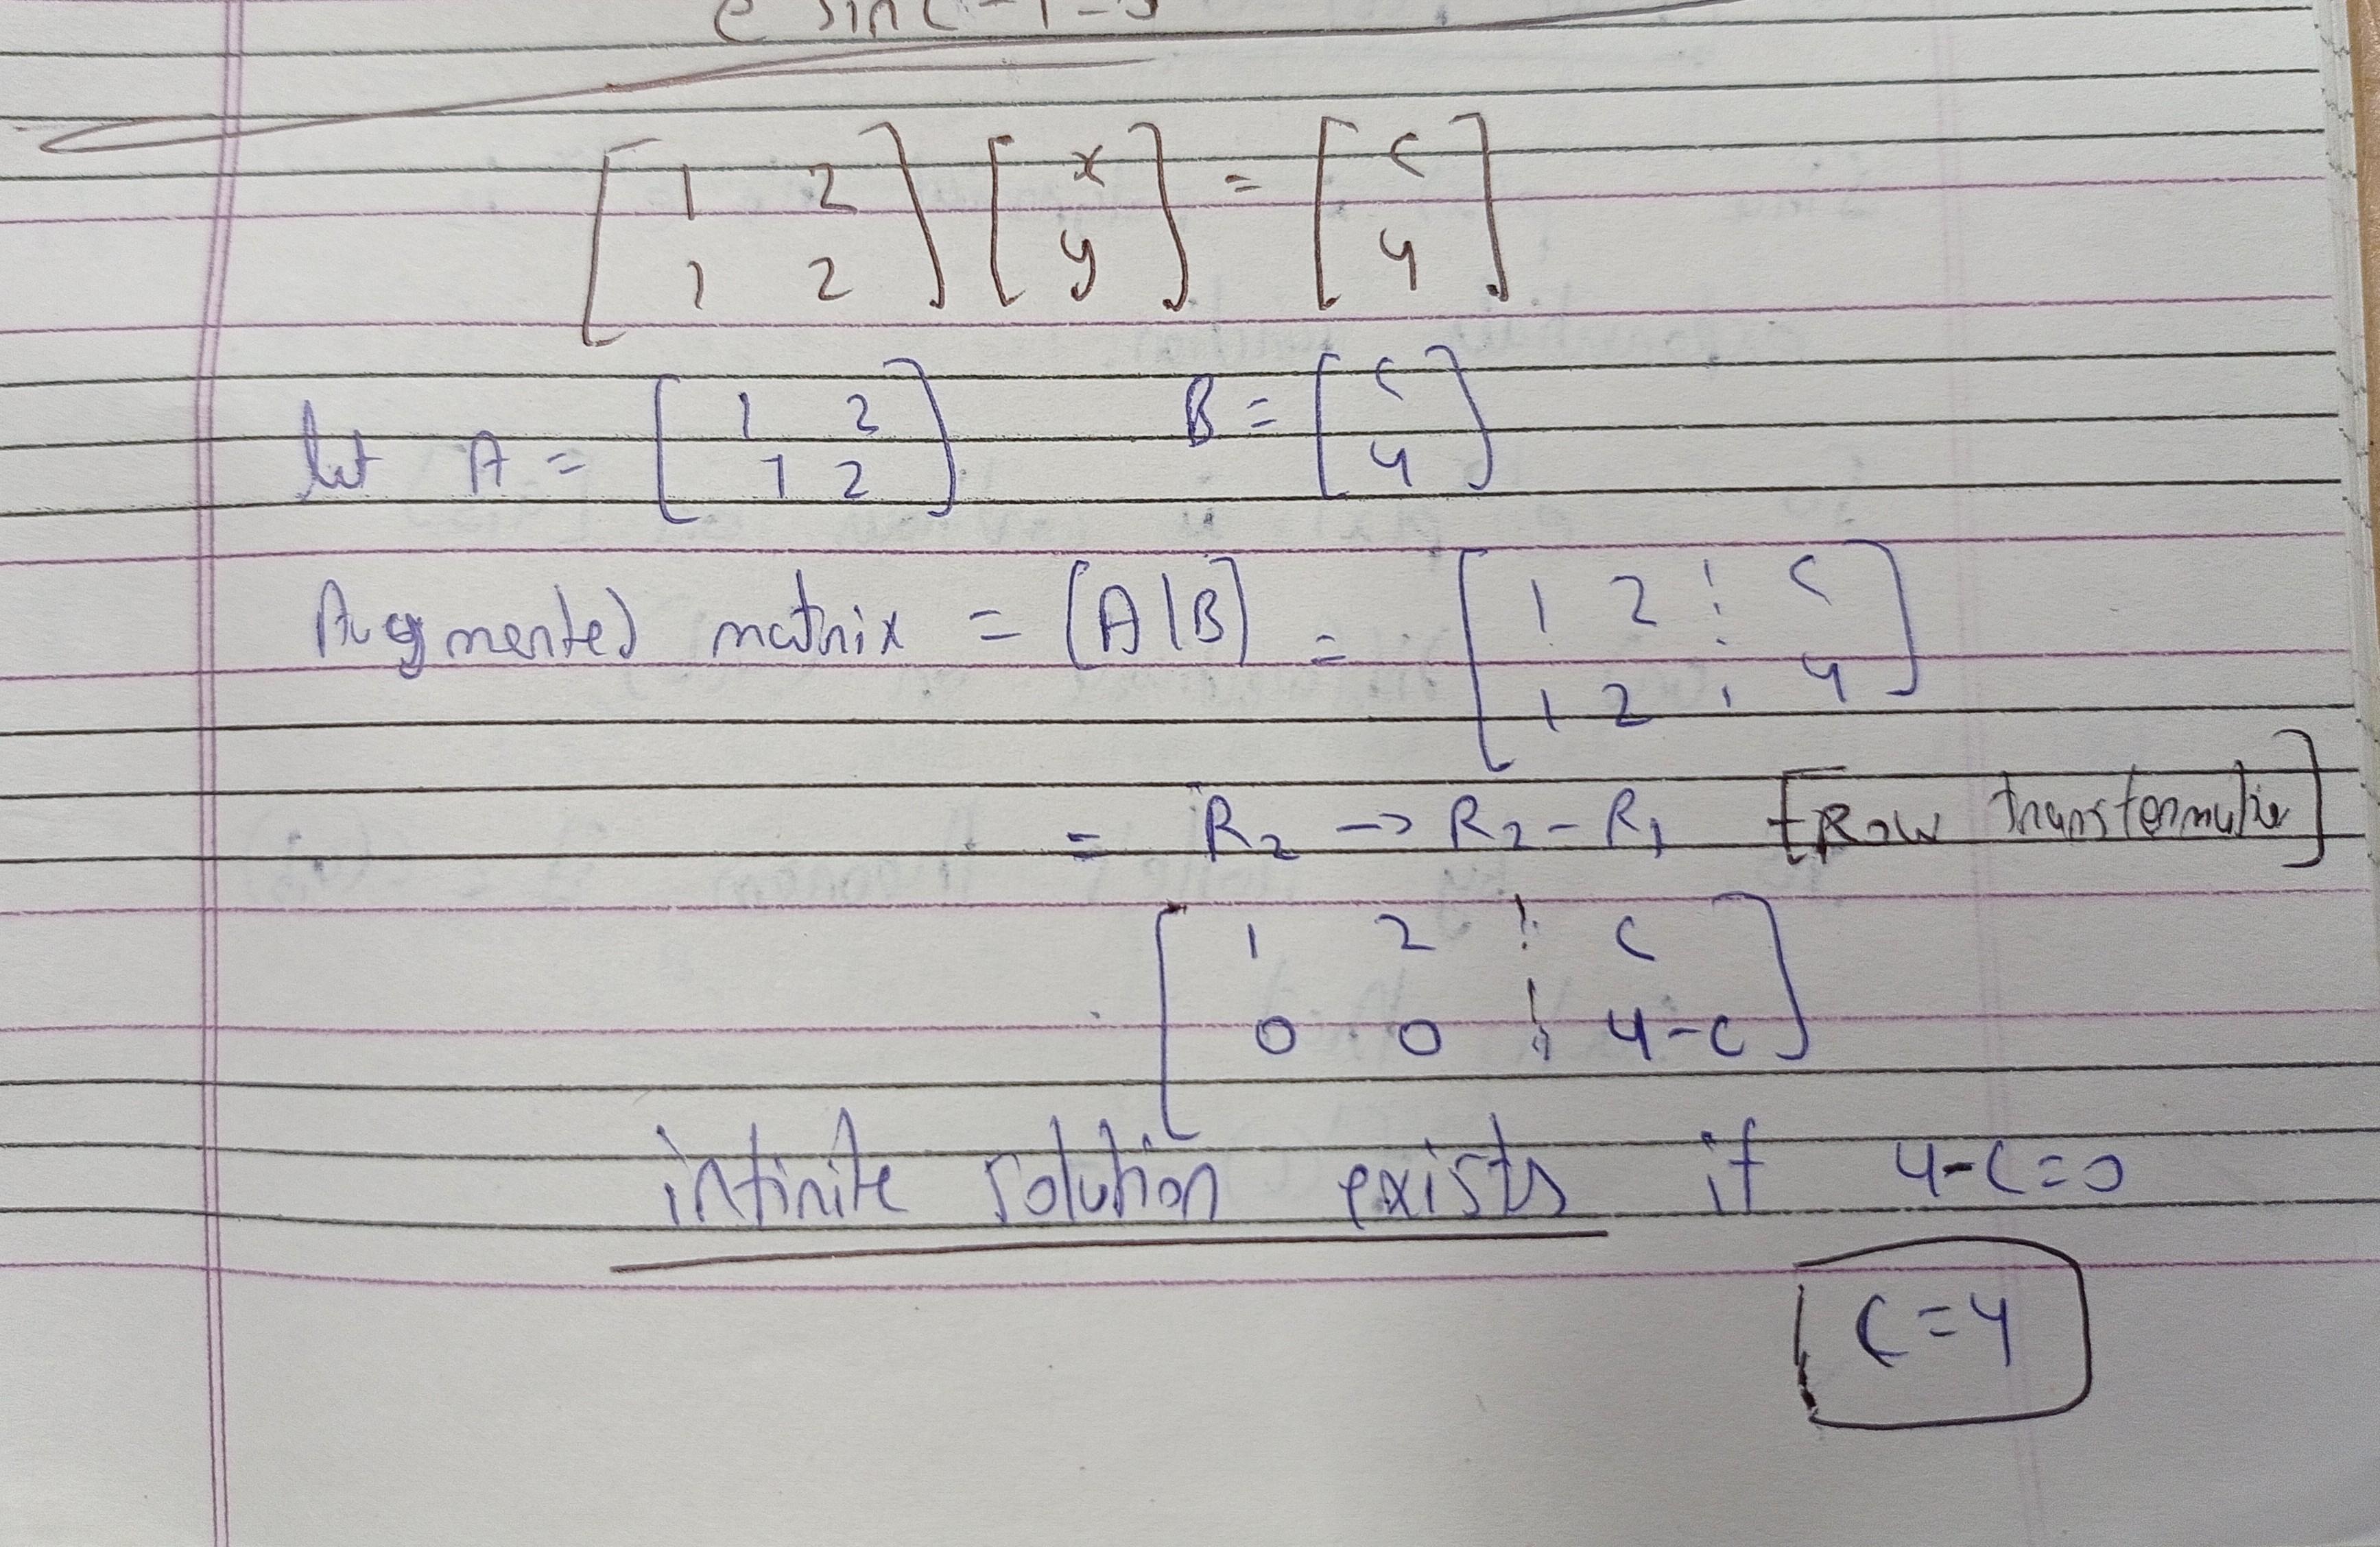 [1 2 1 2] [x y] = [c 4]
let A = [1 2 1 2] B = [c 4]
Augmented matrix = [A|B] = [1 2 ⋮ c 1 2 ⋮ 4]
= R2 → R2 - R1 [Row transformation]
[1 2 ⋮ c 0 0 ⋮ 4-c]
infinite solution exists if 4-c=0
c=4